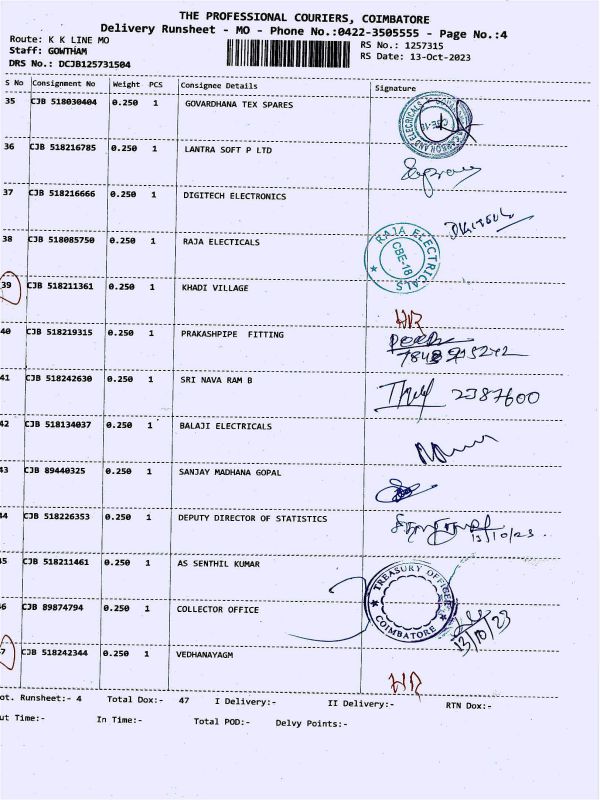 THE PROFESSIONAL COURIERS, COIMBATORE
Delivery Runsheet - MO - Phone No.:0422-3505555 - Page No.:4
Route: K K LINE MO
RS No.: 1257315
Staff: GOWTHAM
RS Date: 13-Oct-2023
DRS No.: DCJB125731504
S No Consignment No Weight PCS Consignee Details Signature
35 CJB 518030404 0.250 1 GOVARDHANA TEX SPARES
CBE-18
36 CJB 518216785 0.250 1 LANTRA SOFT P LTD
37 CJB 518216666 0.250 1 DIGITECH ELECTRONICS
38 CJB 518085750 0.250 1 RAJA ELECTICALS
RAJA ELECTRICALS
CBE-18
39 CJB 518211361 0.250 1 KHADI VILLAGE
HR
40 CJB 518219315 0.250 1 PRAKASHPIPE FITTING
41 CJB 518242630 0.250 1 SRI NAVA RAM B
2387600
42 CJB 518134037 0.250 1 BALAJI ELECTRICALS
43 CJB 89440325 0.250 1 SANJAY MADHANA GOPAL
44 CJB 518226353 0.250 1 DEPUTY DIRECTOR OF STATISTICS
13/10/23.
45 CJB 518211461 0.250 1 AS SENTHIL KUMAR
TREASURY OFFICE
COIMBATORE
46 CJB 89874794 0.250 1 COLLECTOR OFFICE
13/10/23
47 CJB 518242344 0.250 1 VEDHANAYAGM
HR
ot. Runsheet:- 4 Total Dox:- 47 I Delivery:- II Delivery:- RTN Dox:-
ut Time:- In Time:- Total POD:- Delvy Points:-